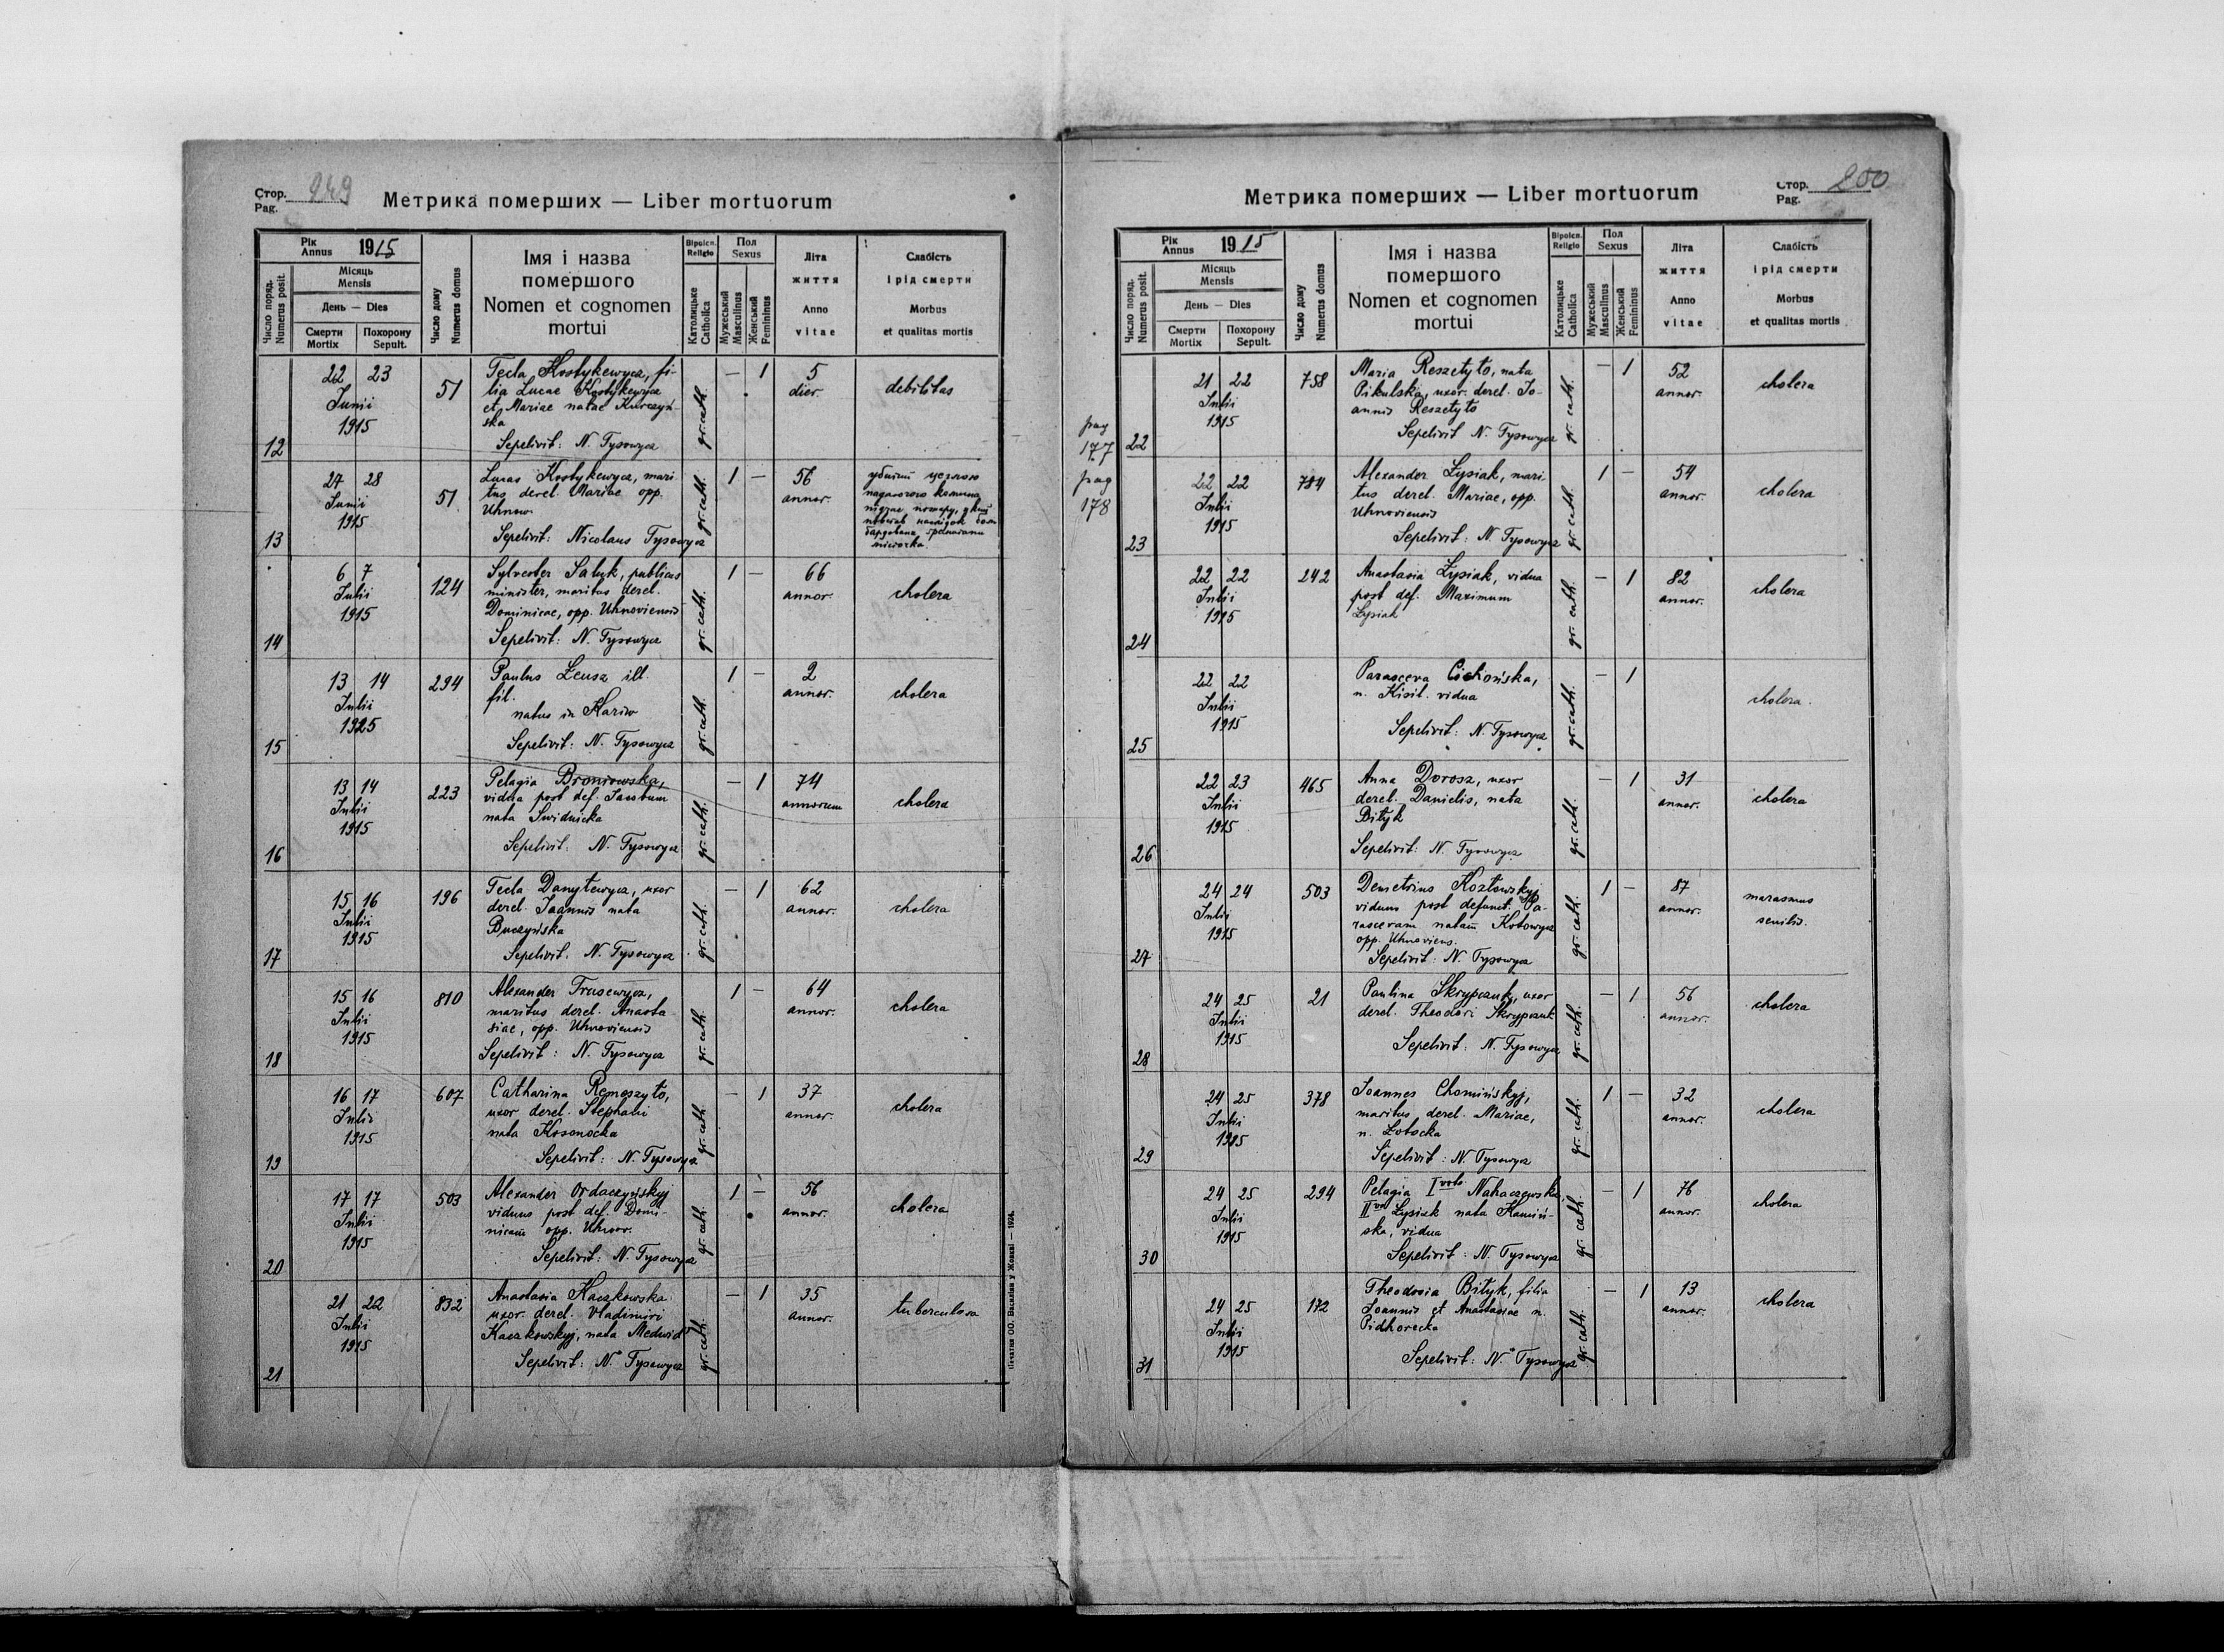 Стор. 249
Pag.
Метрика померших — Liber mortuorum
Рік
Annus
1915
Місяць
Mensis
День — Dies
Смерти
Mortix
Похорону
Sepult.
Число поряд.
Numerus posit.
Число дому
Numerus domus
Імя і назва
помершого
Nomen et cognomen
mortui
Віроісп.
Religio
Католицьке
Catholica
Пол
Sexus
Мужеський
Masculinus
Женський
Femininus
Літа
життя
Anno
vitae
Слабість
і рід смерти
Morbus
et qualitas mortis
12
22 23
Junii
1915
51
Tecla Kostykewycz, fi-
lia Lucae Kostykewycz
et Mariae natae Kurczyń-
ska
Sepelivit: N. Tysowycz
gr. cath.
— 1
5
dier.
debilitas
13
27 28
Junii
1915
51
Lucas Kostykewycz, mari
tus derel. Mariae opp.
Uhnow
Sepelivit: Nicolaus Tysowycz
gr. cath.
1 —
56
annor.
убитий
14
6 7
Julii
1915
124
Sylvester Saluk, publicus
minister, maritus derel.
Dominicae, opp. Uhnoviensis
Sepelivit: N. Tysowycz
gr. cath.
1 —
66
annor.
cholera
15
13 14
Julii
1925
294
Paulus Leusz ill.
fil.
natus in Kariw
Sepelivit: N. Tysowycz
gr. cath.
1 —
2
annor.
cholera
16
13 14
Julii
1915
223
Pelagia Broniowska,
vidua post def. Jacobum
nata Swidnicka
Sepelivit: N. Tysowycz
gr. cath.
— 1
74
annorum
cholera
17
15 16
Julii
1915
196
Tecla Danyłewycz, uxor
derel. Joannis nata
Buczyńska
Sepelivit. N. Tysowycz
gr. cath.
— 1
62
annor.
cholera
18
15 16
Julii
1915
810
Alexander Trusewycz,
maritus derel. Anasta-
siae, opp. Uhnoviensis
Sepelivit: N. Tysowycz
gr. cath.
1 —
64
annor.
cholera
19
16 17
Julii
1915
607
Catharina Remeszyło,
uxor derel. Stephani
nata Kosonocka
Sepelivit: N. Tysowycz
gr. cath.
— 1
37
annor.
cholera
20
17 17
Julii
1915
503
Alexander Ordaczyńskyj
viduus post def. Domi-
nicam opp. Uhnov.
Sepelivit: N. Tysowycz
gr. cath.
1 —
56
annor.
cholera
21
21 22
Julii
1915
832
Anastasia Kaczkowska
uxor. derel. Vladimiri
Kaczkowskyj, nata Medwid
Sepelivit: N. Tysowycz
gr. cath.
— 1
35
annor.
tuberculosa
Печатня ОО. Василіян у Жовкві — 1924.
Метрика померших — Liber mortuorum
Стор. 250
Pag.
Рік
Annus
1915
Місяць
Mensis
День — Dies
Смерти
Mortix
Похорону
Sepult.
Число поряд.
Numerus posit.
Число дому
Numerus domus
Імя і назва
помершого
Nomen et cognomen
mortui
Віроісп.
Religio
Католицьке
Catholica
Пол
Sexus
Мужеський
Masculinus
Женський
Femininus
Літа
життя
Anno
vitae
Слабість
і рід смерти
Morbus
et qualitas mortis
pag
177
pag
178
22
21 22
Julii
1915
758
Maria Reszetyło, nata
Pikulska, uxor. derel. Jo-
annis Reszetyło
Sepelivit N. Tysowycz
gr. cath.
— 1
52
annor.
cholera
23
22 22
Julii
1915
784
Alexander Łysiak, mari
tus derel. Mariae, opp.
Uhnoviensis
Sepelivit: N. Tysowycz
gr. cath.
1 —
54
annor.
cholera
24
22 22
Julii
1915
242
Anastasia Łysiak, vidua
post def. Maximum
Łysiak
gr. cath.
— 1
82
annor.
cholera
25
22 22
Julii
1915
Parasceva Cichońska,
n. Kisil. vidua
Sepelivit: N. Tysowycz
gr. cath.
— 1
cholera.
26
22 23
Julii
1915
465
Anna Dorosz, uxor
derel. Danielis, nata
Biłyk
Sepelivit: N. Tysowycz
gr. cath.
— 1
31
annor.
cholera
27
24 24
Julii
1915
503
Demetrius Kozłowskyj
viduus post defunct. Pa-
rascevam natam Kotowycz
opp. Uhnoviens.
Sepelivit: N. Tysowycz
gr. cath.
1 —
87
annor.
marasmus
senilis.
28
24 25
Julii
1915
21
Paulina Skrypczuk, uxor
derel. Theodori Skrypczuk
Sepelivit: N. Tysowycz
gr. cath.
— 1
56
annor.
cholera
29
24 25
Julii
1915
378
Joannes Chomińskyj,
maritus derel. Mariae,
n. Łotocka
Sepelivit: N. Tysowycz
gr. cath.
1 —
32
annor.
cholera
30
24 25
Julii
1915
294
Pelagia I voto Nahaczewska,
II vo Łysiak nata Kamiń-
ska, vidua
Sepelivit: N. Tysowycz
gr. cath.
— 1
76
annor.
cholera
31
24 25
Julii
1915
172
Theodosia Biłyk, filia
Joannis et Anastasiae n.
Pidhorecka
Sepelivit: N. Tysowycz
gr. cath.
— 1
13
annor.
cholera